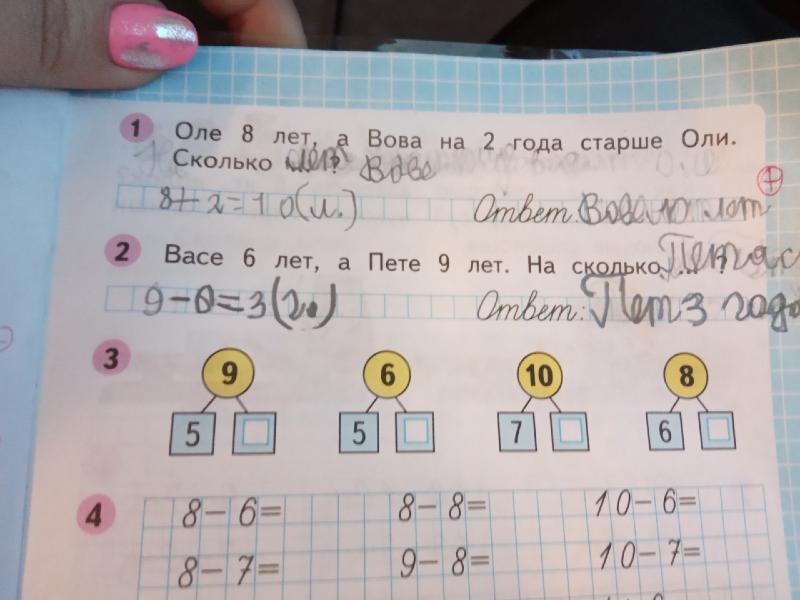 1 Оле 8 лет, а Вова на 2 года старше Оли.
Сколько лет? Вове
8+2=10(л.) Ответ: Вова 10 лет
2 Васе 6 лет, а Пете 9 лет. На сколько ... ?
9-6=3(г.) Ответ: Пет 3 года
3 9 6 10 8
5 5 7 6
4 8-6= 8-8= 10-6=
8-7= 9-8= 10-7=